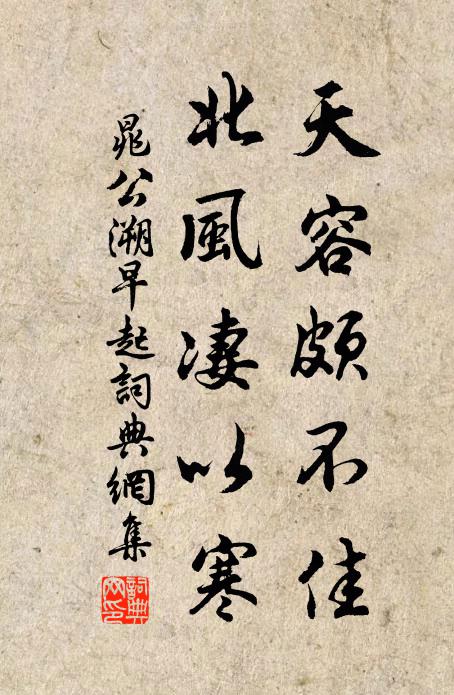 天容頗不佳
北風淒以寒
晁公溯早起詞典網集
詞典網印